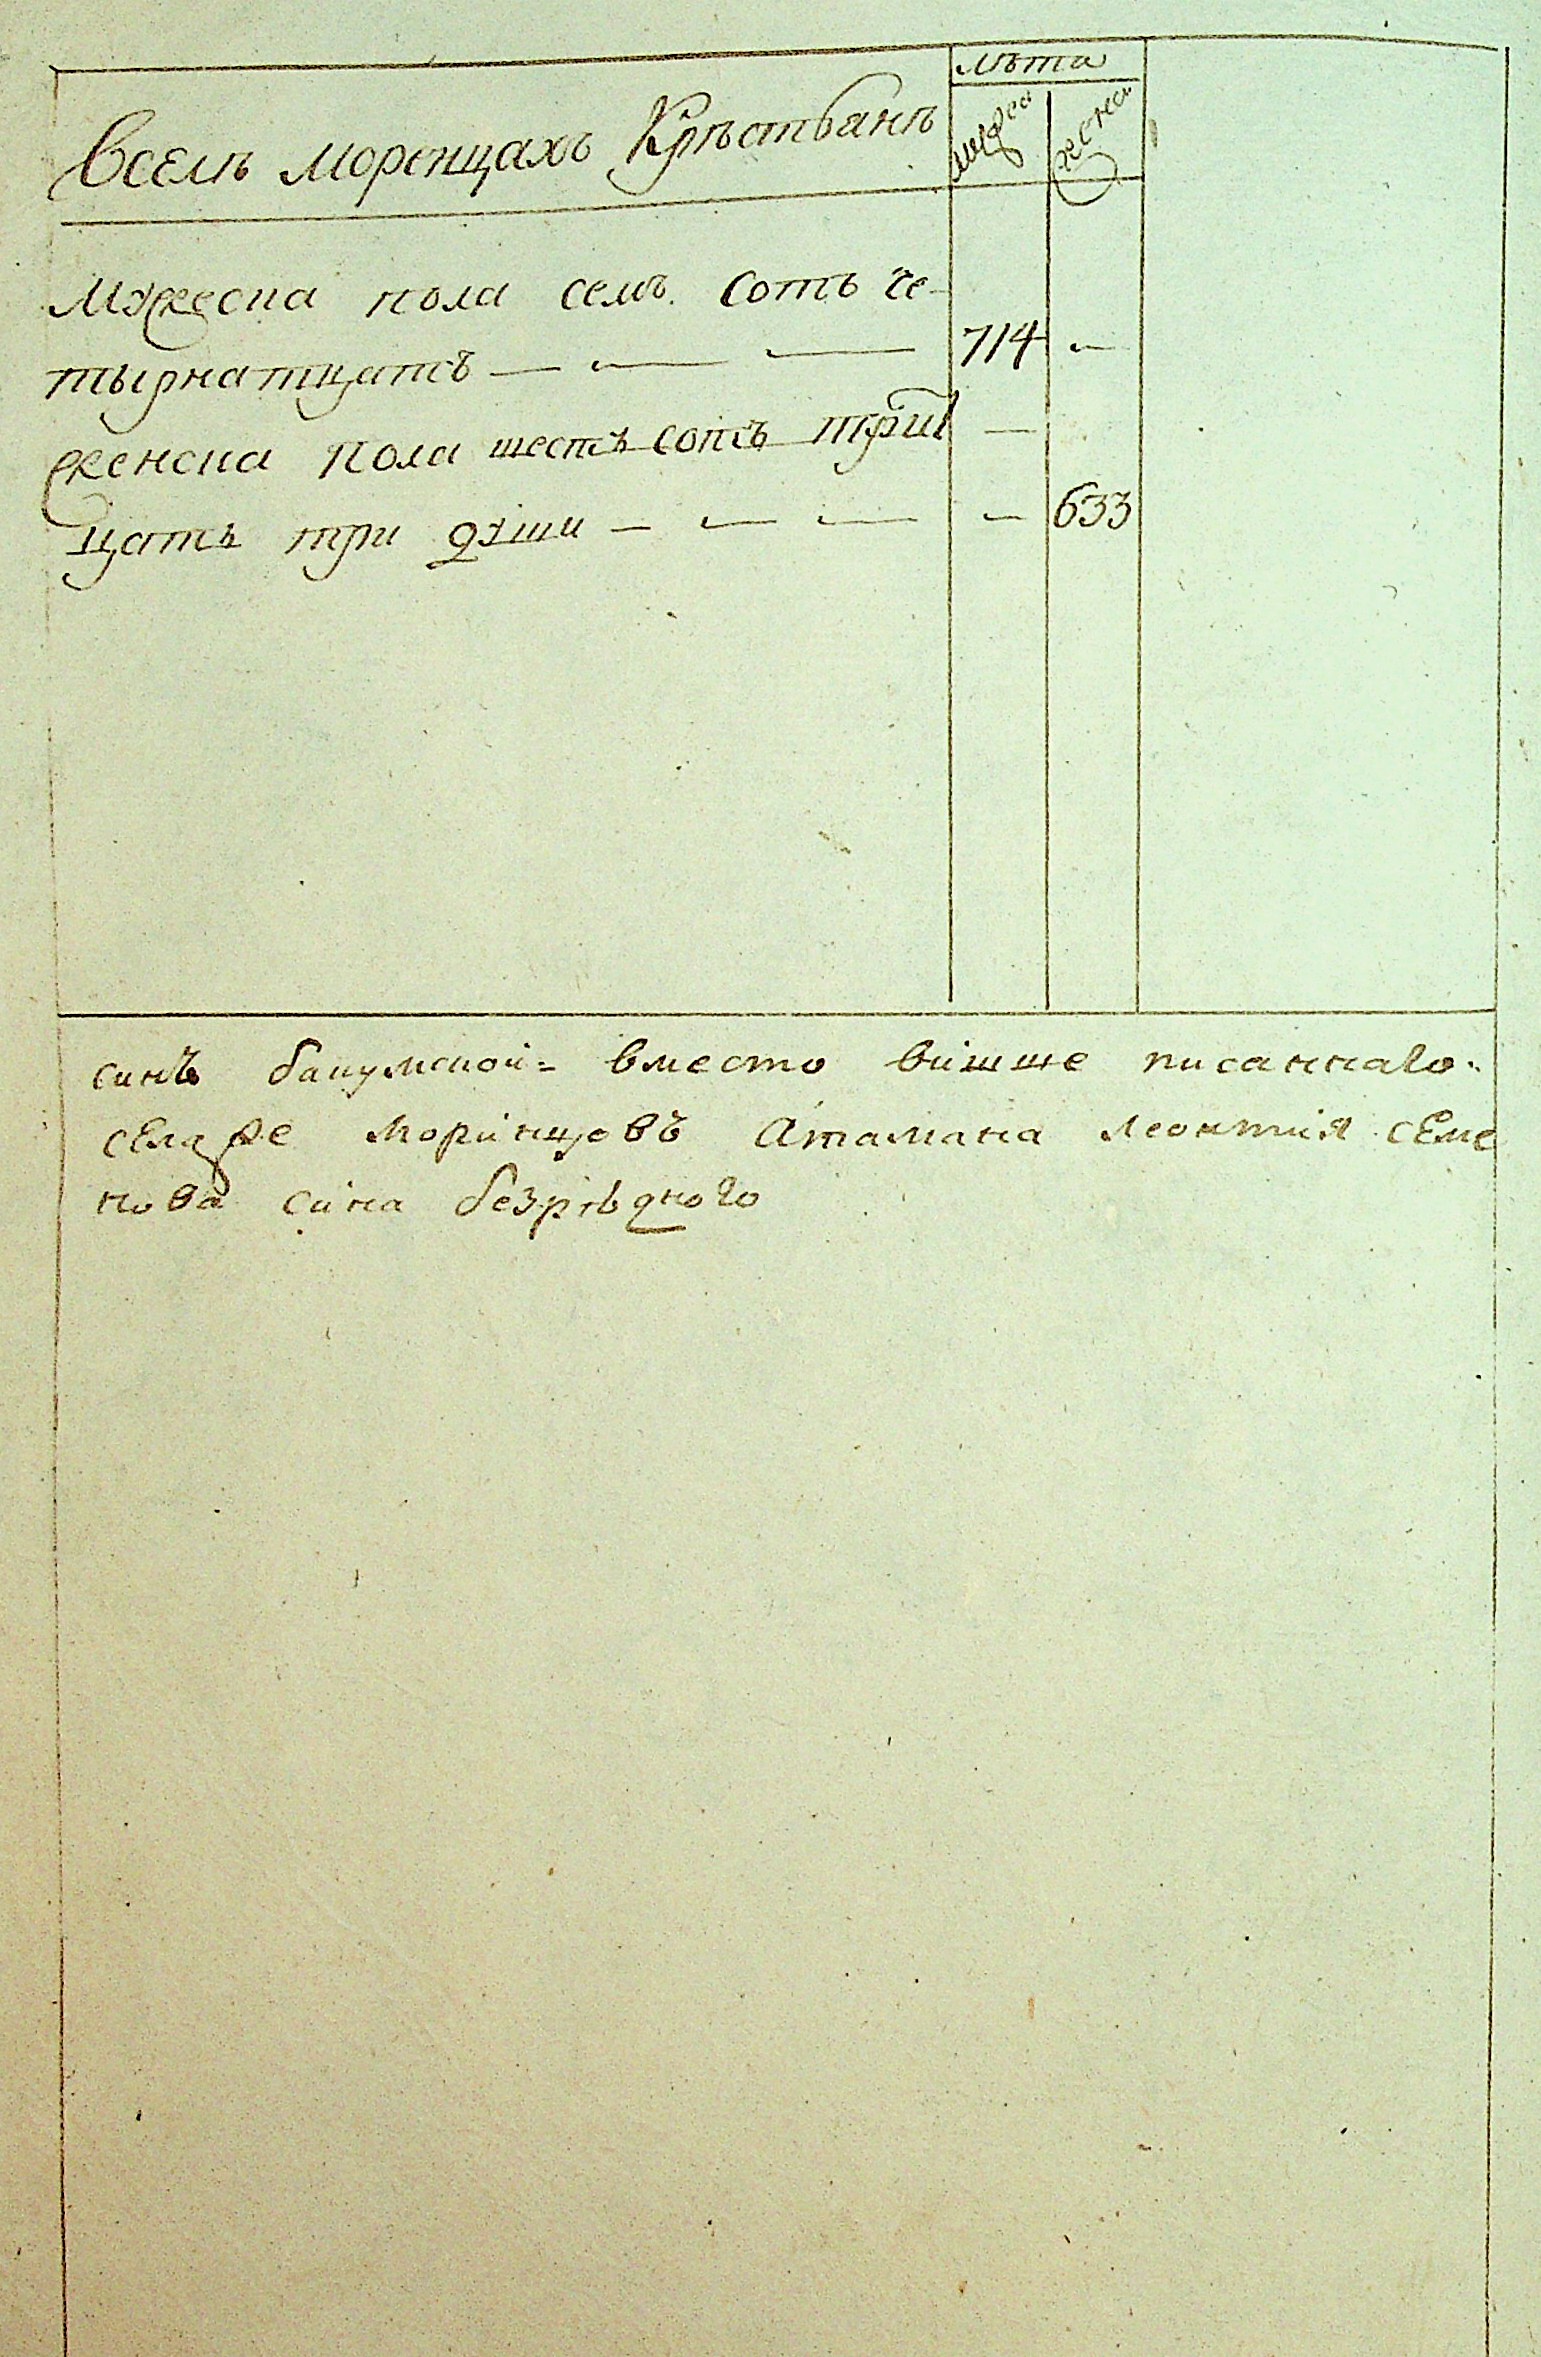 лѣта
Всемъ Моренцахъ Крѣстьянъ
мужеска
женска
Мужеска пола семъ сотъ че-
тырнатцать 714
женска пола шестъ сотъ трит
цать три души 633
синъ бакумской= вместо више писаннаго.
села же Моринцовъ Атамана Леонтия Семе
нова сина безрѣдного